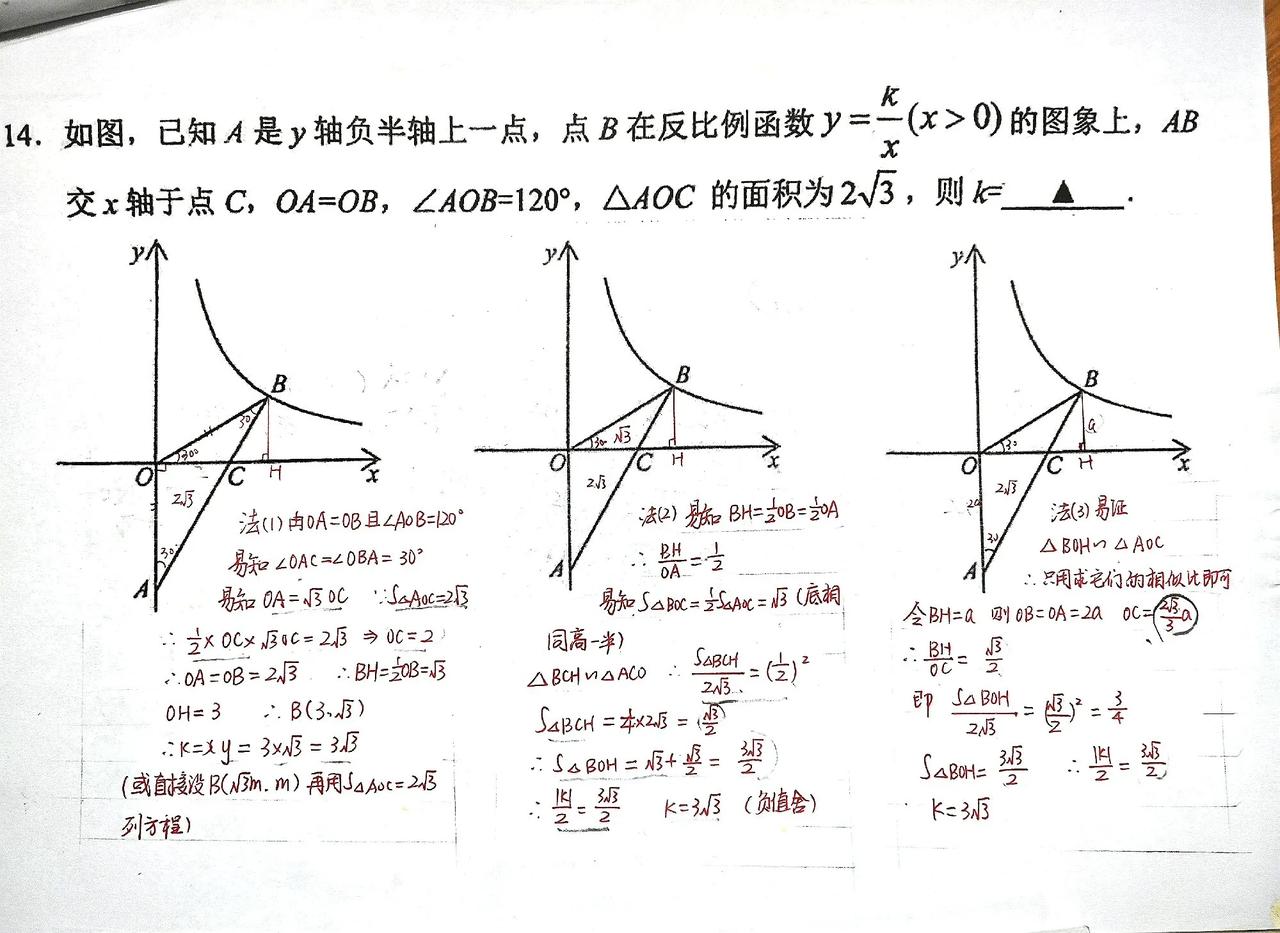 14. 如图，已知 A 是 y 轴负半轴上一点，点 B 在反比例函数 y = k/x (x > 0) 的图象上，AB
交 x 轴于点 C，OA=OB，∠AOB=120°，△AOC 的面积为 2√3，则 k=____▲____.
y
B
30°
30°
O
C
H
x
2√3
30°
A
法(1) 由OA=OB且∠AOB=120°
易知 ∠OAC=∠OBA=30°
易知 OA=√3 OC ∵S△AOC=2√3
∴ 1/2 × OC × √3 OC = 2√3 ⇒ OC = 2
∴ OA=OB=2√3 ∴BH=1/2OB=√3
OH=3 ∴ B(3,√3)
∴K=xy=3×√3=3√3
(或直接设B(√3m, m) 再用S△AOC=2√3
列方程)
y
B
30°
√3
O
C
H
x
2√3
A
法(2) 易知 BH=1/2OB=1/2OA
∴ BH/OA = 1/2
易知 S△BOC=1/2S△AOC=√3 (底相
同高一半)
△BCH∽△ACO ∴ S△BCH/2√3 = (1/2)²
S△BCH=1/4×2√3=√3/2
∴ S△BOH=√3+√3/2=3√3/2
∴ |K|/2=3√3/2 K=3√3 (负值舍)
y
B
a
30
O
C
H
x
2a
2√3
30
A
法(3) 易证
△BOH∽△AOC
∴只用求它们的相似比即可
令BH=a 则OB=OA=2a OC=2√3/3 a
∴ BH/OC = √3/2
即 S△BOH/2√3 = (√3/2)² = 3/4
S△BOH=3√3/2 ∴ |K|/2=3√3/2
K=3√3